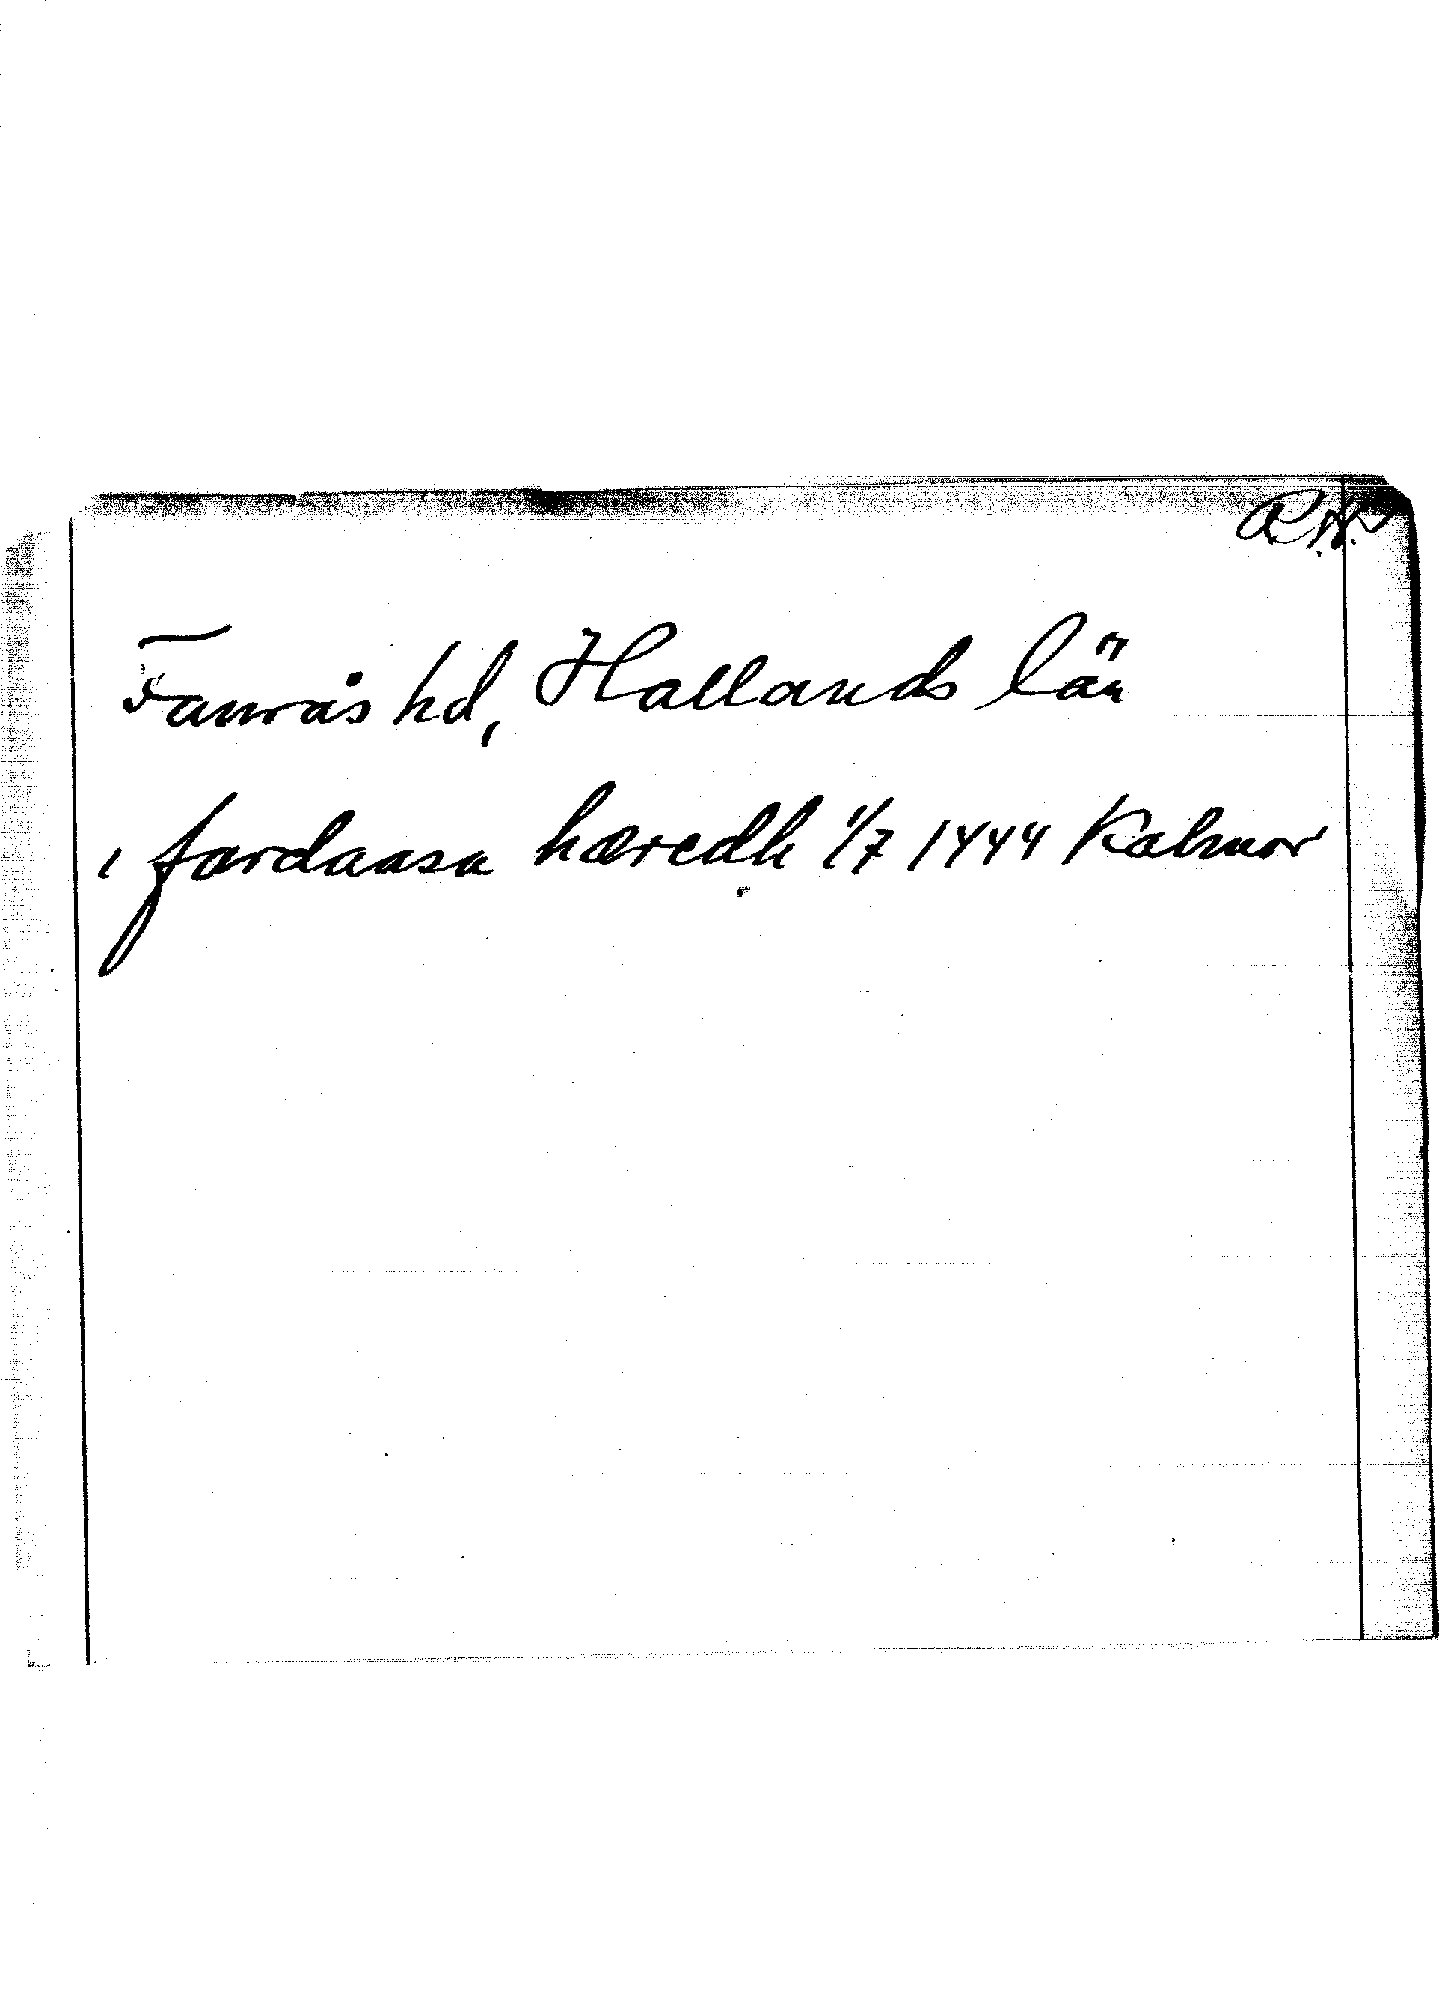 R.A.
Faurås hd, Hallands län
i fordaasa hæredh 1/7 1444 Kalmar